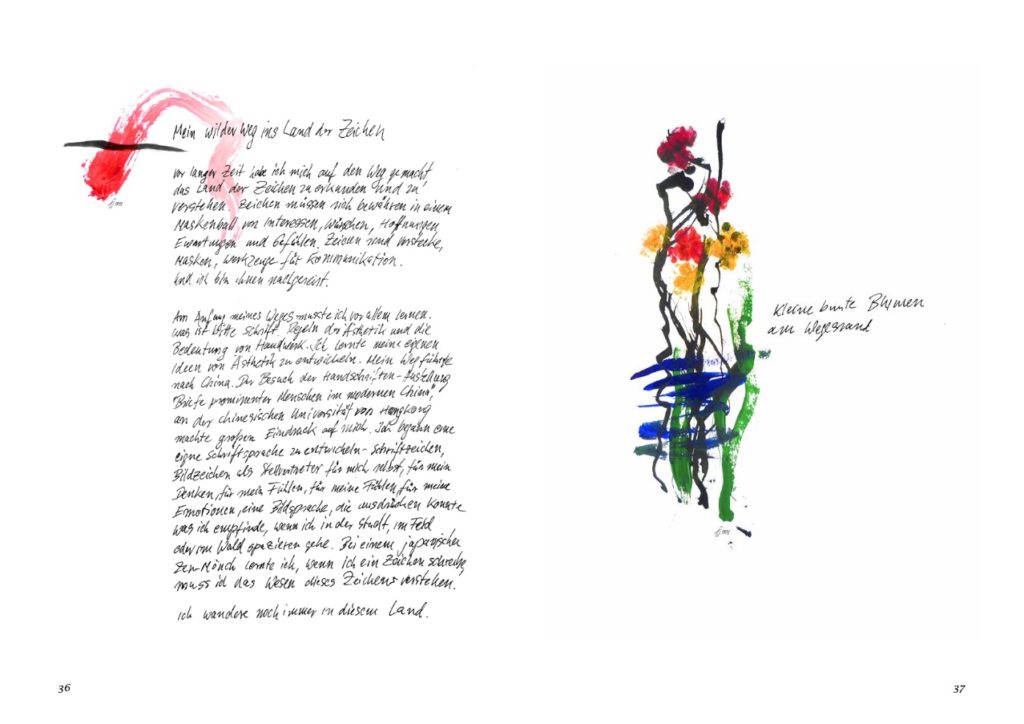 Mein wilder Weg ins Land der Zeichen
vor langer Zeit habe ich mich auf den Weg gemacht
das Land der Zeichen zu erkunden und zu
verstehen. Zeichen müssen sich bewähren in einem
Maskenball von Interessen, Wünschen, Hoffnungen
Erwartungen und Gefühlen. Zeichen sind Verstecke,
Masken, Werkzeuge für Kommunikation.
und ich bin ihnen nachgereist.
Am Anfang meines Weges musste ich vor allem lernen.
was ist bitte Schrift, Regeln der Ästhetik und die
Bedeutung von Handwerk. Ich lernte meine eigenen
Ideen von Ästhetik zu entwickeln. Mein Weg führte
nach China. Der Besuch der Handschriften-Austellung
"Briefe prominenter Menschen im modernen China",
an der chinesischen Universität von Hongkong
machte großen Eindruck auf mich. Ich begann eine
eigne Schriftsprache zu entwickeln - Schriftzeichen,
Bildzeichen als Stellvertreter für mich selbst, für mein
Denken, für mein Fühlen, für meine Fühlen, für meine
Emotionen, eine Bildsprache, die ausdrücken konnte
was ich empfinde, wenn ich in der Stadt, im Feld
oder im Wald spazieren gehe. Bei einem japanischen
Zen-Mönch lernte ich, wenn ich ein Zeichen schreibe,
muss ich das Wesen dieses Zeichens verstehen.
ich wandere noch immer in diesem Land.
36
Kleine bunte Blumen
am Wegesrand
37